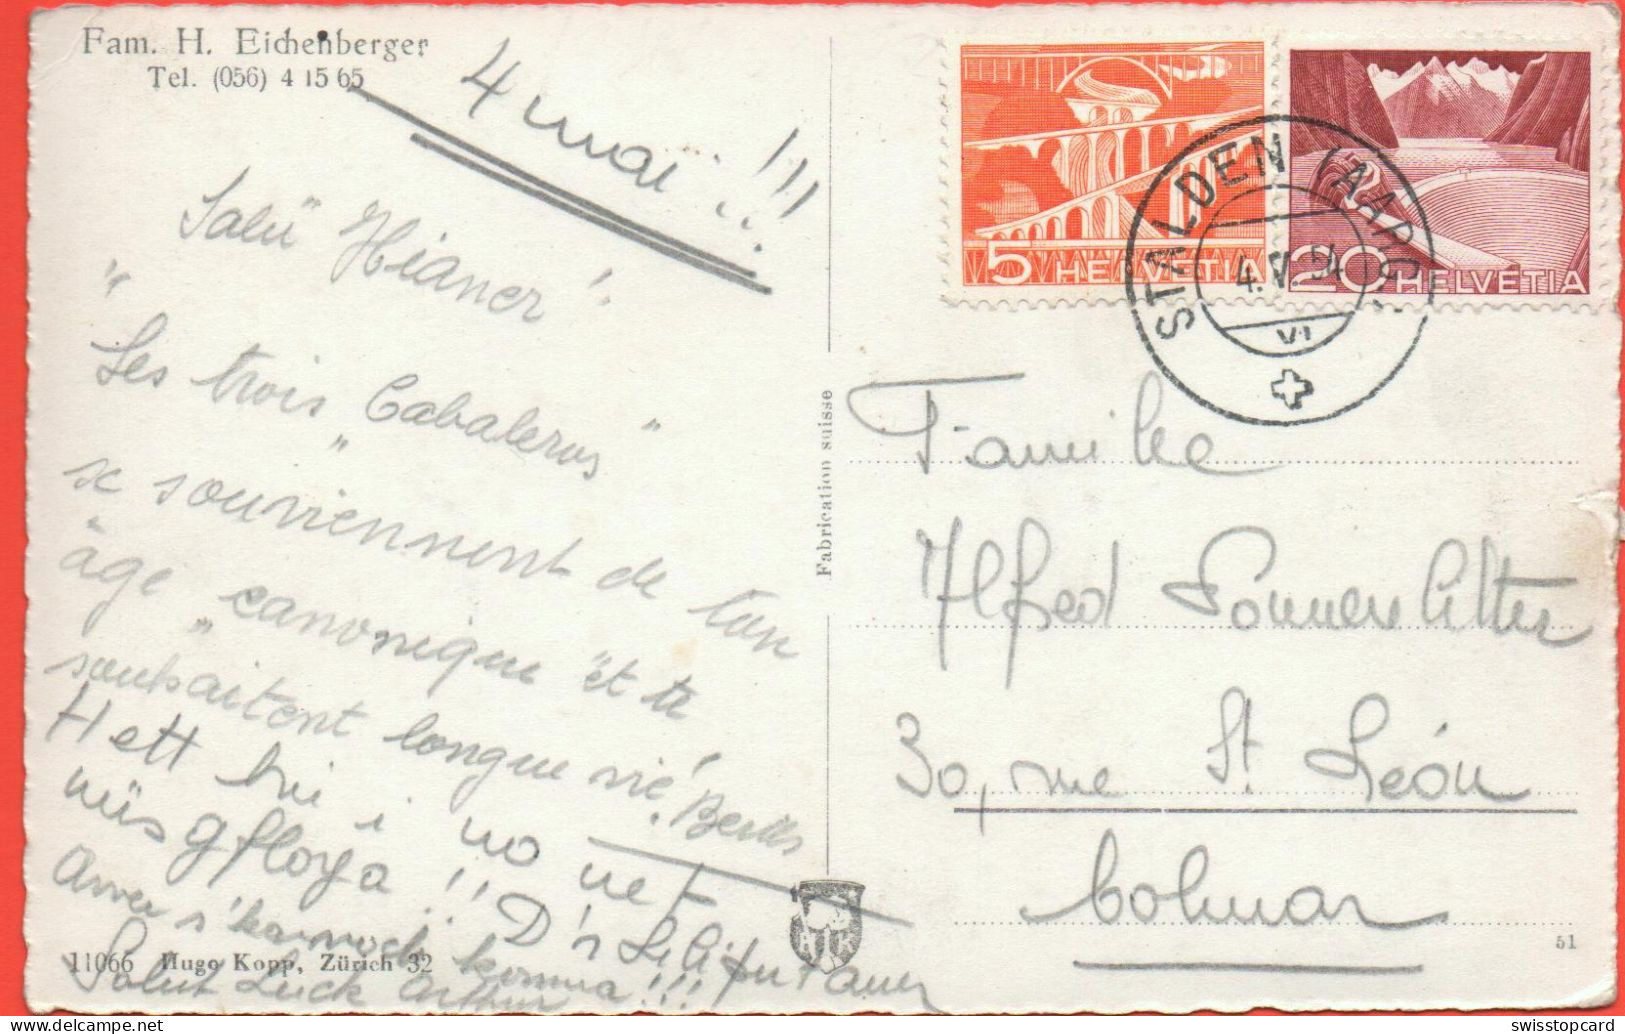 Fam. H. Eichenberger
Tel. (056) 4 15 65
4 mai !!!
Salü Hianer!
"Les trois "Cabaleros"
se souviennent de ton
âge "canonique" et te
souhaitent longue vie!
Hett hni i no net
nüs gfloga!! D'r Liliputaner
s'kannoch komma!!!
Salut Luck Arthur
11066 Hugo Kopp, Zürich 32
Fabrication suisse
HK
5 HELVETIA
20 HELVETIA
STALDEN (AARG.)
4.V.54
VI
Famille
Alfred Sonnenlitter
30, rue St. Léon
Colmar
51
swisstopcard.com